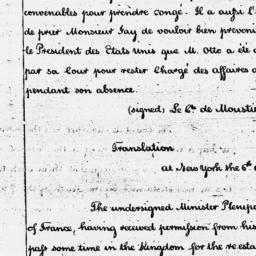 convenables pour prendre congé. Il a aussi l'
de prier Monsieur Jay de vouloir bien preveni
le President des Etats Unis que M. Otto a été
par sa Cour pour rester Chargé des affaires
pendant son absence.
(signed) Le Cte. de Moustie
Translation
at New York the 6th
The undersigned Minister Plenipo
of France, having received permission from his
pass some time in the Kingdom for the re esta